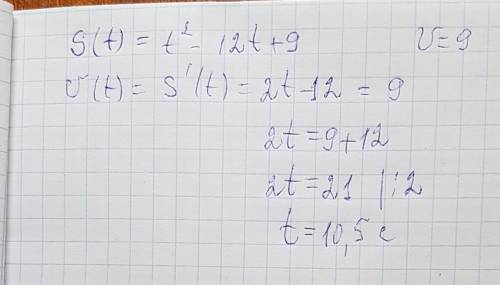 S(t) = t² - 12t + 9 V = 9
V(t) = S'(t) = 2t - 12 = 9
2t = 9 + 12
2t = 21 | : 2
t = 10,5 с